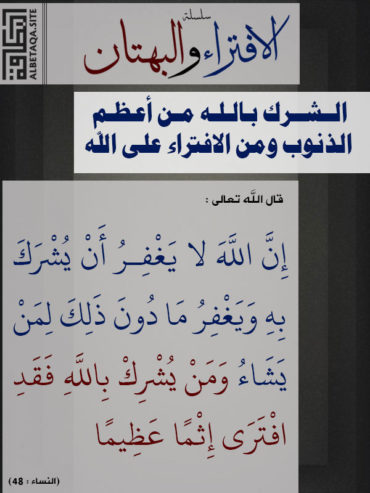 سلسلة
الافتراء والبهتان
البطاقة
ALBETAQA.SITE
الشرك بالله من أعظم
الذنوب ومن الافتراء على الله
قال الله تعالى :
إِنَّ اللَّهَ لَا يَغْفِرُ أَنْ يُشْرَكَ
بِهِ وَيَغْفِرُ مَا دُونَ ذَلِكَ لِمَنْ
يَشَاءُ وَمَنْ يُشْرِكْ بِاللَّهِ فَقَدِ
افْتَرَى إِثْمًا عَظِيمًا
(النساء : 48)